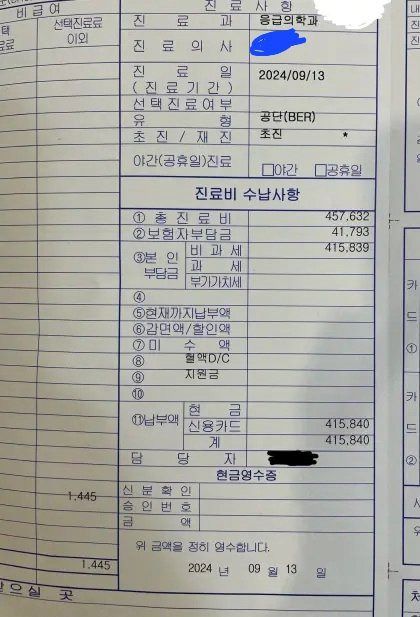 진료사항
비급여
선택진료료
이외
진료과 응급의학과
진료의사
진료일
(진료기간) 2024/09/13
선택진료여부
유형 공단(BER)
초진/재진 초진 *
야간(공휴일)진료 □야간 □공휴일
진료비 수납사항
① 총진료비 457,632
②보험자부담금 41,793
③본인부담금 비과세 415,839
과세
부가가치세
④
⑤현재까지납부액
⑥감면액/할인액
⑦미수액
⑧ 혈액D/C
⑨ 지원금
⑩
⑪납부액 현금
신용카드 415,840
계 415,840
담당자
현금영수증
1,445
신분확인
승인번호
금액
위 금액을 정히 영수합니다.
1,445
2024 년 09 월 13 일
곳